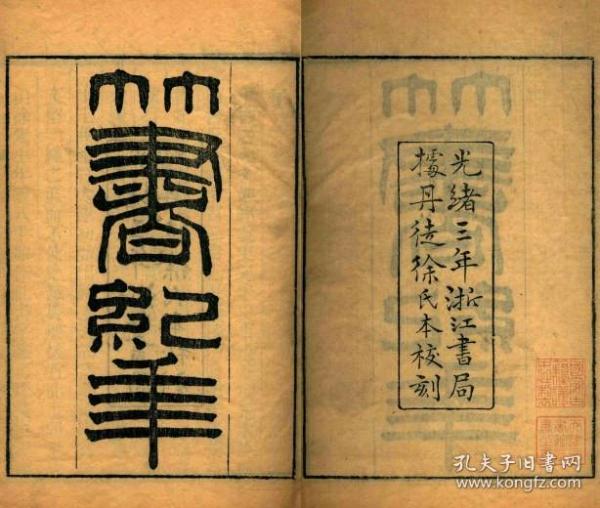 竹書紀年
光緒三年浙江書局
據丹徒徐氏本校刻
孔夫子旧书网
www.kongfz.com